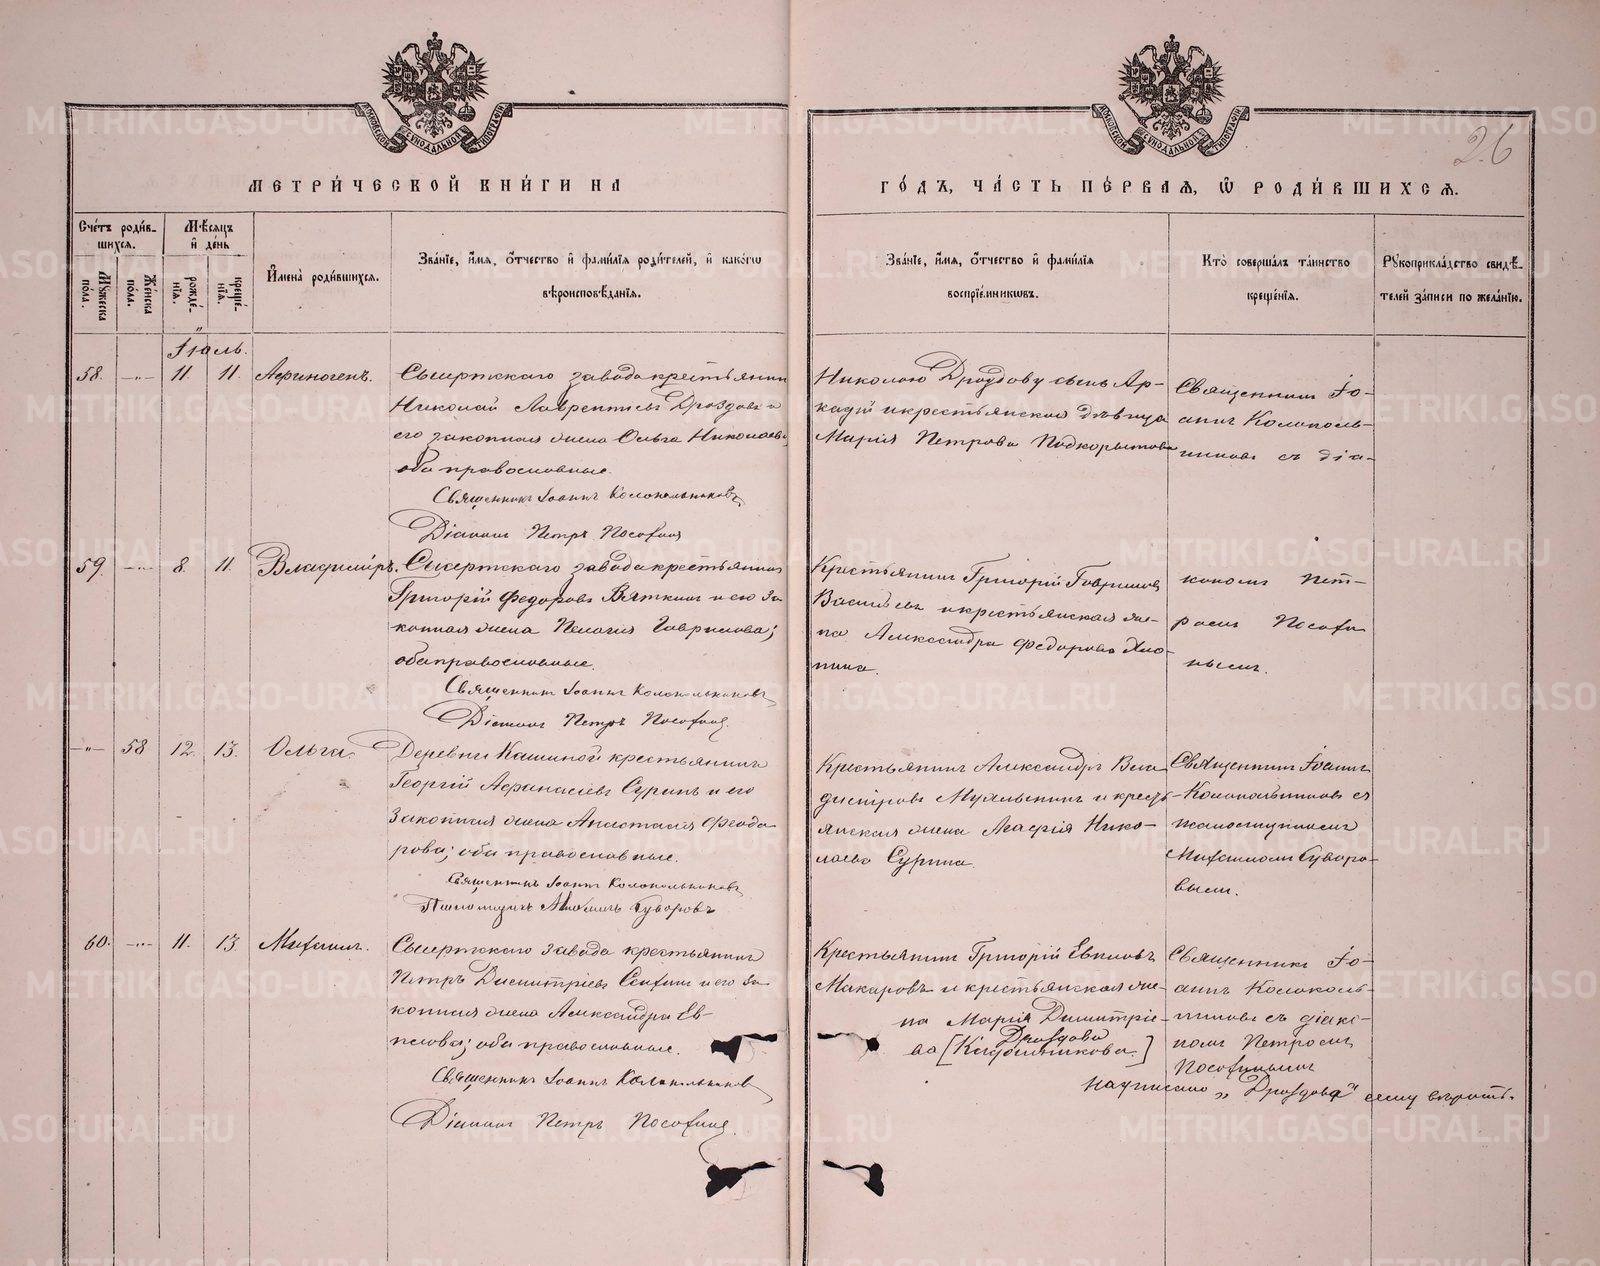 МЕТРИ́ЧЕСКОЙ КНИ́ГИ НА
ГО́ДЪ, ЧА́СТЬ ПЕ́РВАЯ, Ѡ҆ РОДИ́ВШИХСѦ.
26
Сче́тъ роди́в-
шихсѧ.
Мꙋжеска по́ла.
Же́нска по́ла.
Мѣ́сѧцъ
и҆ де́нь
рожде́-
нїѧ.
креще́-
нїѧ.
И҆мена̀ роди́вшихсѧ.
Зва́нїе, и҆́мѧ, ѻ҆́тчество и҆ фами́лїѧ роди́телей, и҆ како́гѡ
вѣроисповѣ́данїѧ.
Зва́нїе, и҆́мѧ, ѻ҆́тчество и҆ фами́лїѧ
воспрїе́мникѡвъ.
Кто̀ соверша́лъ та́инство
креще́нїѧ.
Рꙋкоприкла́дство свидѣ́-
телей за́писи по жела́нїю.
Іюль.
58. -"- 11. 11. Аѳиногенъ.
Сысертскаго завода крестьянинъ
Николай Лаврентіевъ Дроздовъ и
его законная жена Ольга Николаева
оба православные.
Священникъ Іоаннъ Колокольниковъ
Діаконъ Петръ Посохинъ
Николаю Дроздову сынъ Ар-
кадій и крестьянская дѣвица
Марія Петрова Подкорытова
Священникъ Іо-
аннъ Колоколь-
никовъ съ діа-
59. -"- 8. 11. Владиміръ.
Сысертскаго завода крестьянинъ
Григорій Федоровъ Вяткинъ и его за-
конная жена Пелагія Гаврилова;
оба православные.
Священникъ Іоаннъ Колокольниковъ
Діаконъ Петръ Посохинъ.
Крестьянинъ Григорій Гавриловъ
Васильевъ и крестьянская же-
на Александра Федорова
кономъ Пет-
ромъ Посохи-
нымъ.
-"- 58 12. 13. Ольга.
Деревни Кашиной крестьянинъ
Георгій Аѳанасіевъ Суринъ и его
законная жена Анастасія Ѳеодо-
рова; оба православные.
Священникъ Іоаннъ Колокольниковъ
Михаилъ Суворовъ
Крестьянинъ Александръ Вла-
диміровъ и кресть-
янская жена Агафія Нико-
лаева Сурина.
Священникъ Іоаннъ
Колокольниковъ съ
псаломщикомъ
Михаиломъ Суворо-
вымъ.
60. -"- 11. 13 Михаилъ.
Сысертскаго завода крестьянинъ
Петръ Димитріевъ и его за-
конная жена Александра Ев-
; оба православные.
Священникъ Іоаннъ Колокольниковъ
Діаконъ Петръ Посохинъ.
Крестьянинъ Григорій
Макаровъ и крестьянская же-
на Марія Димитріе-
Дроздова
ва [ ]
Священникъ Іо-
аннъ Колоколь-
никовъ съ діако-
номъ Петромъ
Посохинымъ
написано „Дроздова" сему вѣрить.